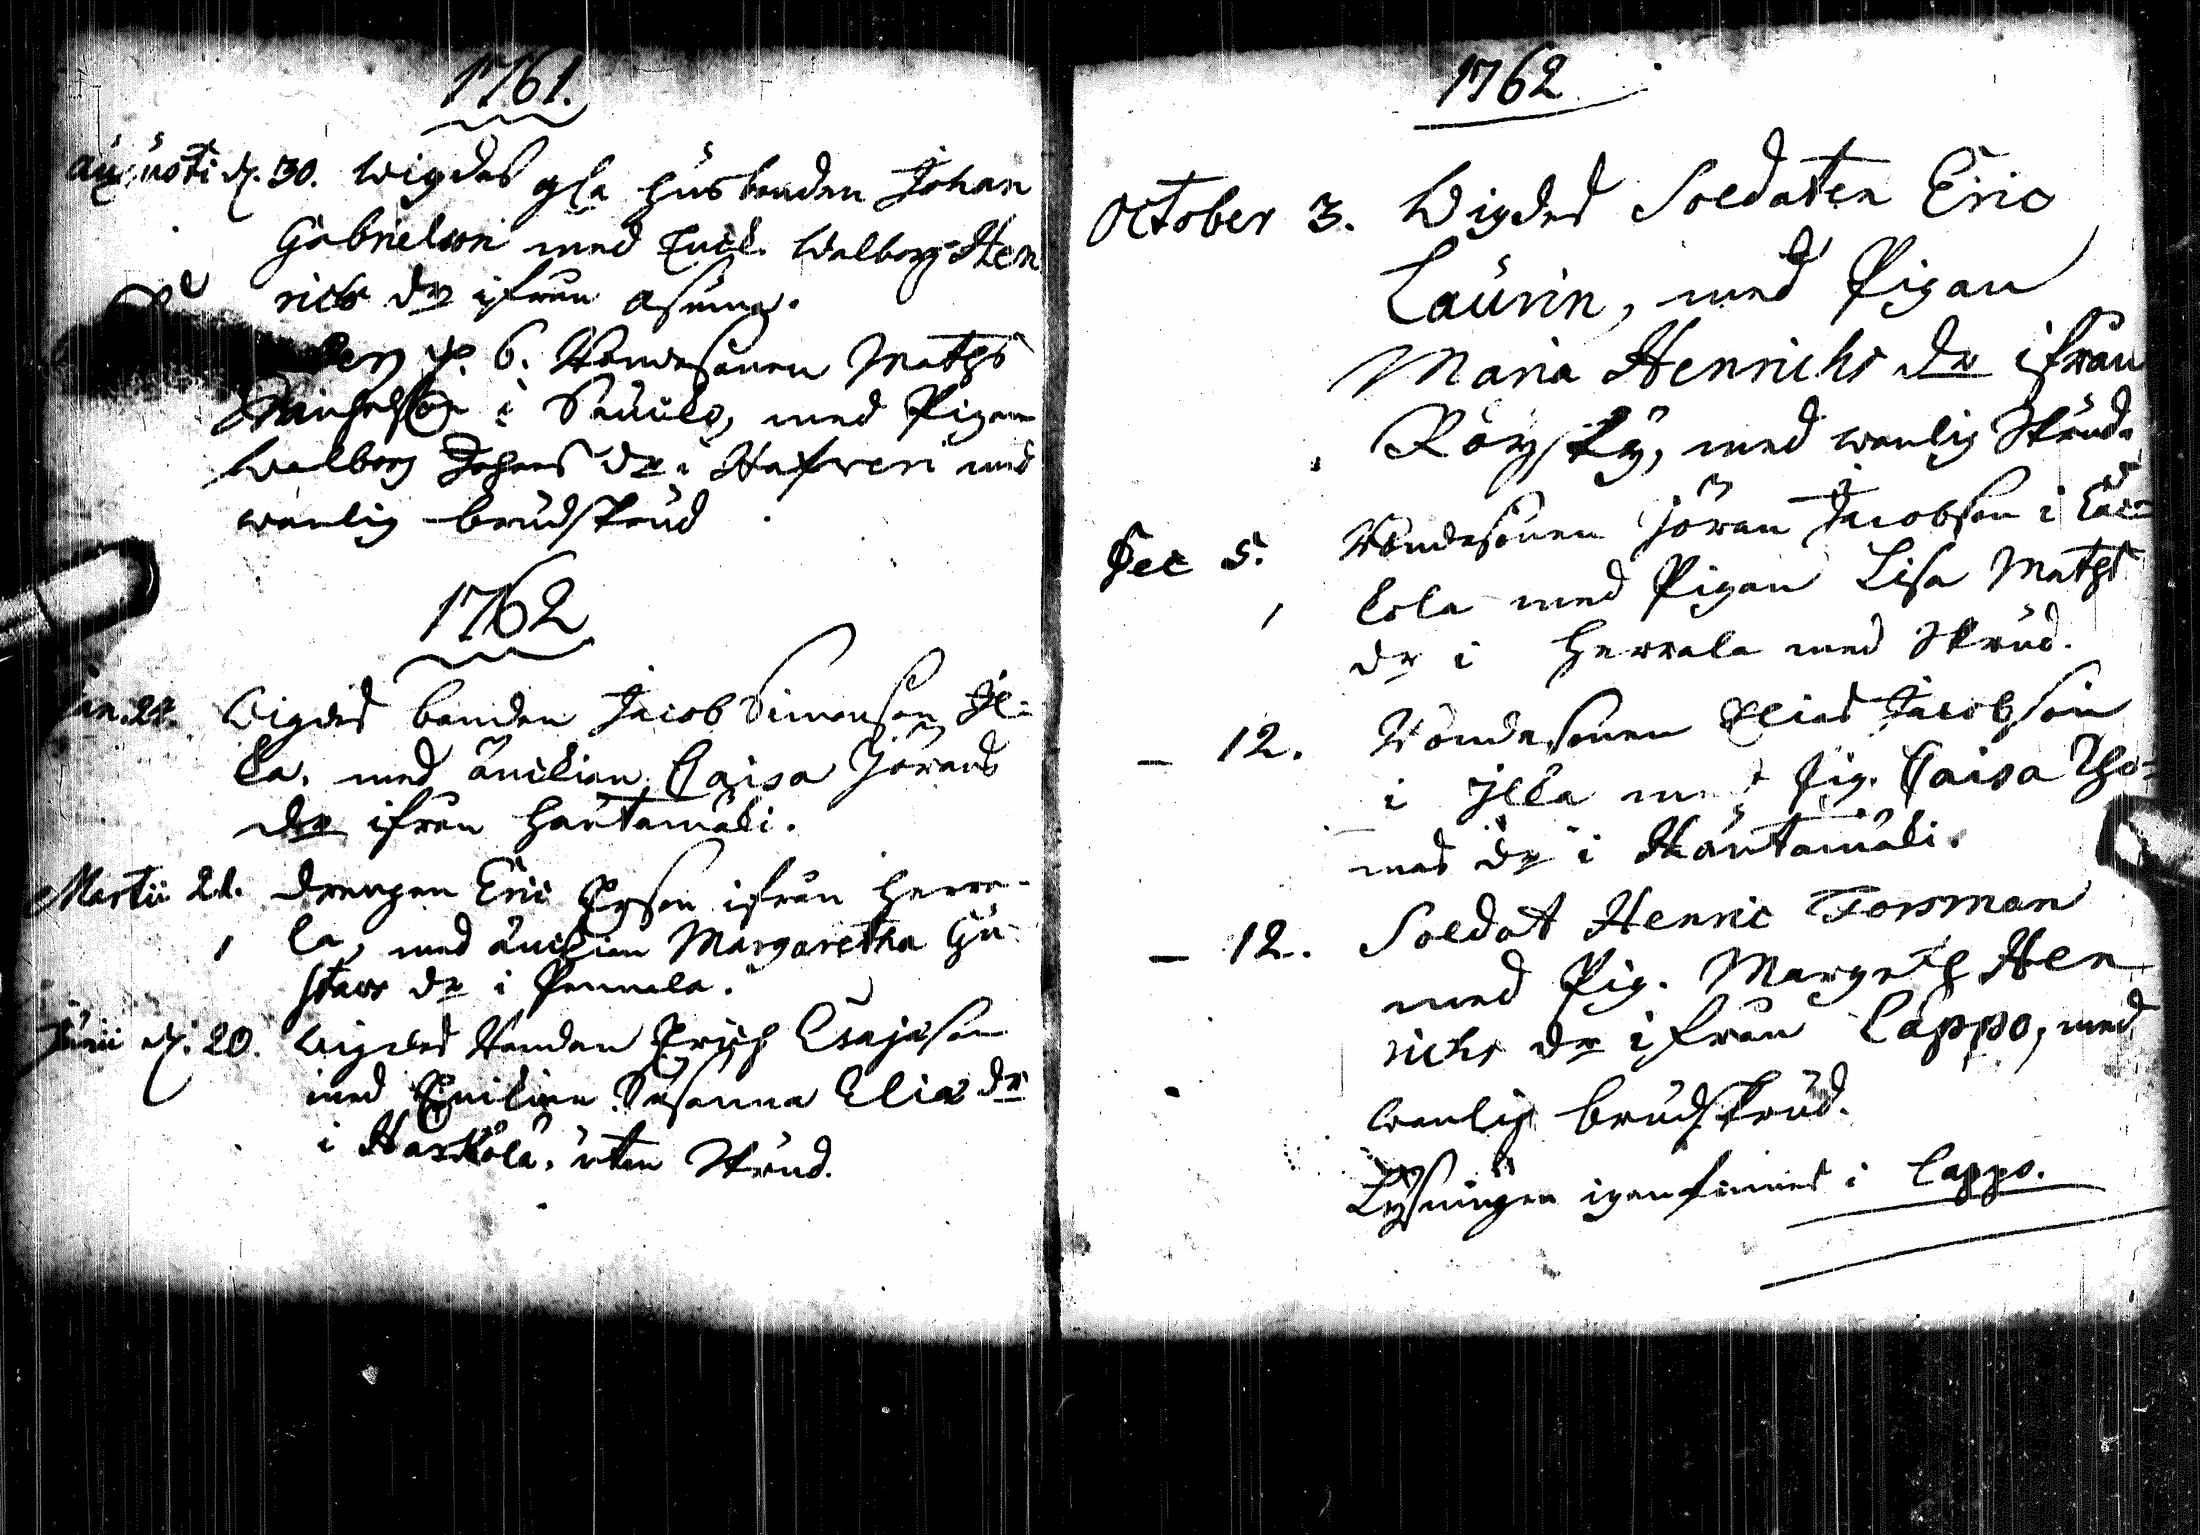 1761.
Augusti d. 30. Wigdes gla husbonden Johan
Gabrielson med Enck. Walborg Hen
richs dr ifrån
d. 6. Bondesonen Maths
Michelson i med Pigan
Walborg Johans dr i med
wanlig brudskrud
1762
Jan. 24. Wigdes bonden Jacob Simonson Il-
ka, med änkian Caisa Jörans
dr ifrån Hautamäki.
Martii 21. drengen Eric Ersson ifrån Herra-
la, med änkian Margaretha Gu-
stavs dr i Pennala.
Junii d. 20. Wigdes Bonden Erich Esajason
med Enkian Susanna Elias dr
i Harkola, utan Skrud.
1762
October 3. Wigdes Soldaten Eric
Laurin, med Pigan
Maria Henrichs dr ifrån
Röyskö, med wanlig Skrud.
Dec 5. Bondesonen Jöran Jacobson i
kola med Pigan Lisa Maths
dr i Herrala med Skrud.
- 12. Bondesonen Elias Jacobson
i Ilka med Pig. Caisa Tho-
mas dr i Hautamäki.
- 12. Soldat Henric Forsman
med Pig. Margreth Hen
richs dr ifrån Lappo, med
wanlig brudskrud.
Lysningen igenfinnes i Lappo.